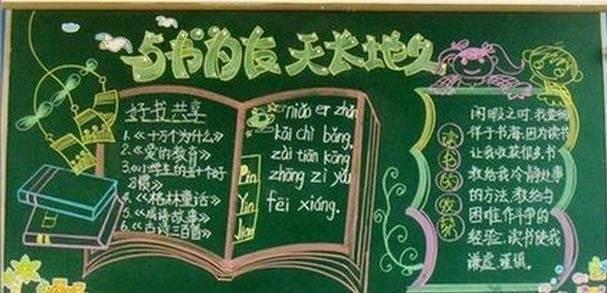 与书为友 天长地久
好书共享
1.《十万个为什么》
2.《爱的教育》
3.《小学生的五十个好
习惯》
4.《格林童话》
5.《成语故事》
6.《古诗三百首》
Pin
Yin
Jiao
niǎo er zhāng
kāi chì bǎng,
zài tiān kōng
zhōng zì yóu
fēi xiáng.
读书的收获
闲暇之时,我喜欢
徉于书海,因为读书
让我收获很多,书
教给我冷静处事
的方法,教给与
困难作斗争的
经验,读书使我
谦虚、谨慎。